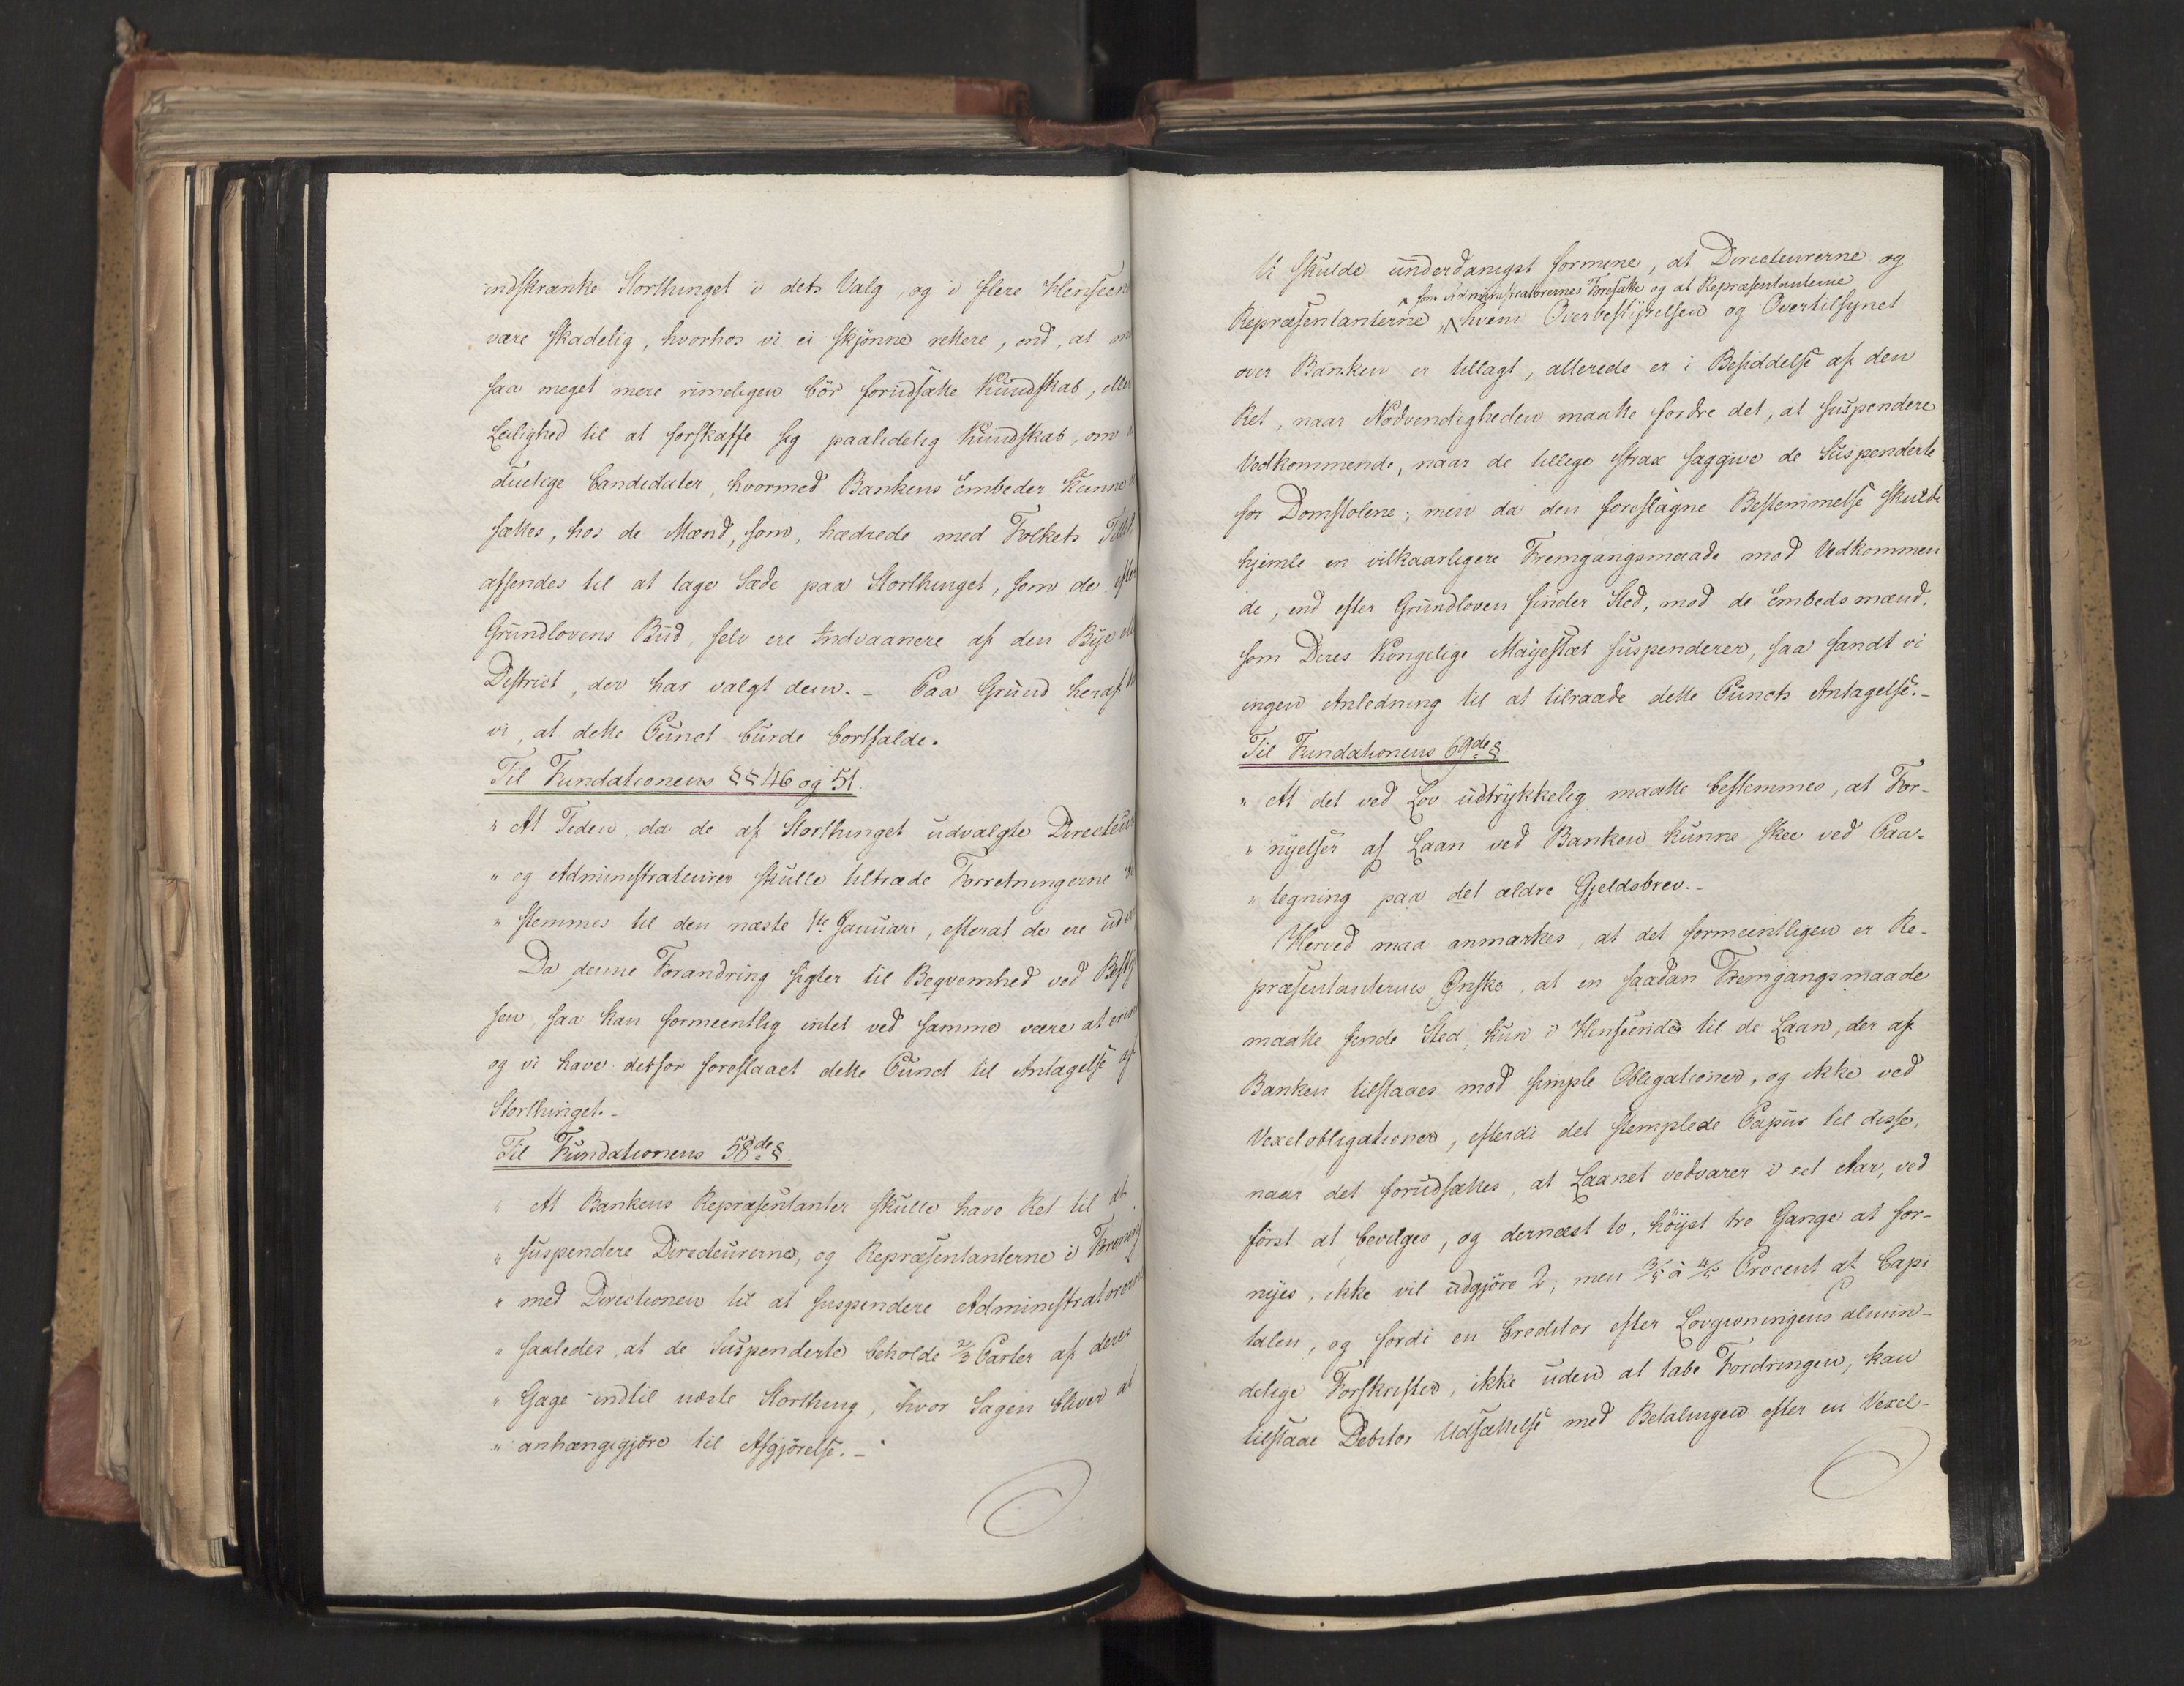 indskrænke Storthinget i dets Valg, og i flere Henseen
være skadelig, hvorhos vi ei skjönne rettere, end, at
saa meget mere rimeligen bör forudsætte Kundskab, eller
Leilighed til at forskaffe sig paalidelig Kundskab, om
duelige Candidater, hvormed Bankens Embeder kunne
sættes, hos de Mænd, som, hædrede med Folkets
afsendes til at tage Sæde paa Storthinget, som de efter
Grundlovens Bud, selv ere Indvaanere af den Bye
District, der har valgt dem. – Paa Grund heraf
vi, at dette Punct burde bortfalde.
Til Fundationens §§ 46 og 51.
" At Tiden, da de af Storthinget udvalgte Directeur
" og Administrateurer skulle tiltræde Forretningerne
" stemmes til den næste 1te Januari, efterat de ere
Da denne Forandring sigter til Beqvemhed ved
sen, saa kan formeentlig intet ved samme være at
og vi have derfor foreslaaet dette Punct til Antagelse af
Storthinget. –
Til Fundationens 58de §.
" At Bankens Repræsentanter skulle have Ret til at
" suspendere Directeurerne, og Repræsentanterne i
" med Directionen til at suspendere Administratorerne
" saaledes, at de Suspenderte beholde 2/3 Parter af deres
" Gage indtil næste Storthing, hvor Sagen bliver at
" anhængiggjöre til Afgjörelse. –
Vi skulde underdanigst formene, at Directeurerne og
som Administratorernes Foresatte og at Repræsentanterne
Repræsentanterne, hvem Overbestyrelsen og Overtilsynet
over Banken er tillagt, allerede er i Besiddelse af den
Ret, naar Nödvendigheden maatte fordre det, at suspendere
Vedkommende, naar de tillige strax saggive de Suspenderte
for Domstolene; men da den foreslagne Bestemmelse skulde
hjemle en vilkaarligere Fremgangsmaade mod Vedkommen
de, end efter Grundloven finder Sted, mod de Embedsmænd,
som Deres Kongelige Majestæt suspenderer, saa fandt vi
ingen Anledning til at tilraade dette Puncts Antagelse. –
Til Fundationens 69de §.
" At det ved Lov udtrykkelig maatte bestemmes, at For-
" nyelser af Laan ved Banken kunne skee ved Paa-
" tegning paa det ældre Gjeldsbrev. –
Herved maa anmærkes, at det formeentligen er Re-
præsentanternes Önske, at en saadan Fremgangsmaade
maatte finde Sted, kun i Henseende til de Laan, der af
Banken tilstaaes mod simple Obligationer, og ikke ved
Vexelobligationer, efterdi det stemplede Papiir til disse,
naar det forudsættes, at Laanet vedvarer i eet Aar, ved
först at bevilges, og dernæst to, höist tre Gange at for-
nyes, ikke vil udgjöre 2, men 3/5 à 4/5 Procent af Capi
talen, og fordi en Creditor efter Lovgivningens almin-
delige Forskrifter, ikke uden at tabe Fordringen, kan
tilstaae Debitor Udsættelse med Betalingen efter en Vexel-